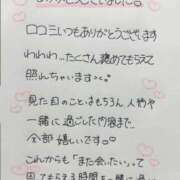 口コミいつもありがとうございます
わわわ...たくさん褒めてもらえて
照れちゃいます><
見た目のことはもちろん 人柄や
一緒に過ごした内容まで...
全部 嬉しいです♡
これからも「また会いたい。」って
思ってもらえる時間を一緒に過